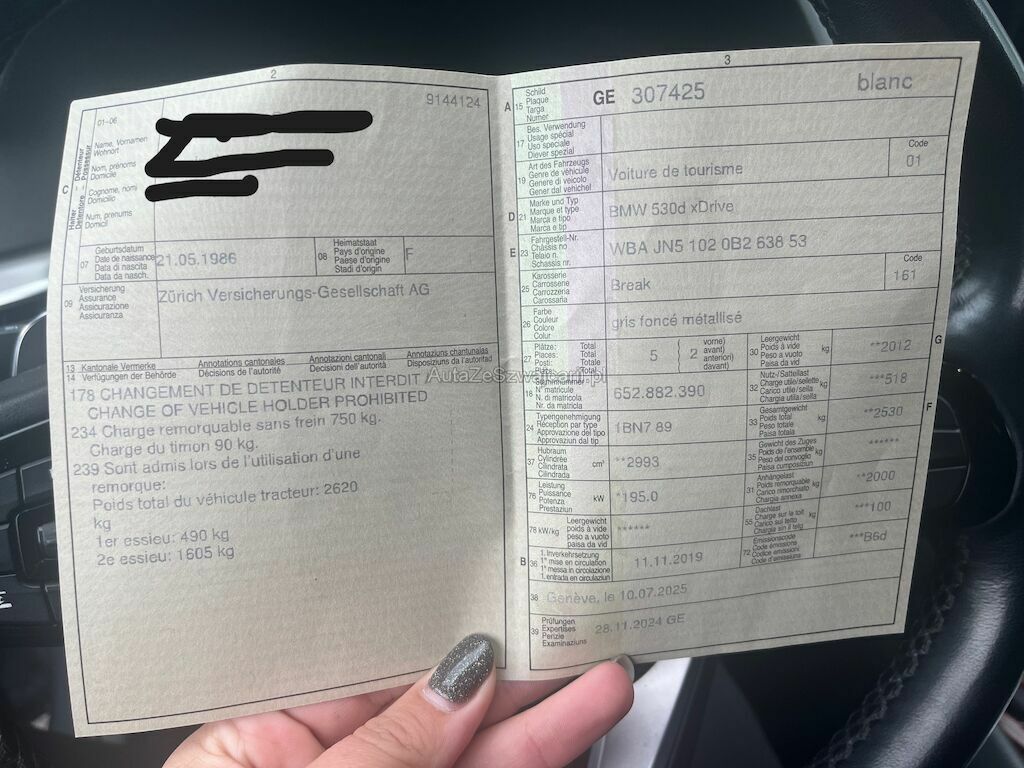 2
9144124
C
Halter Détenteur
Detentore Possessur
01-06
Name, Vornamen
Wohnort
Nom, prénoms
Domicile
Cognome, nomi
Domicilio
Num, prenums
Domicil
07 Geburtsdatum
Date de naissance
Data di nascita
Data da nasch.
21.05.1986
08 Heimatstaat
Pays d'origine
Paese d'origine
Stadi d'origin
F
09 Versicherung
Assurance
Assicurazione
Assicuranza
Zürich Versicherungs-Gesellschaft AG
13 Kantonale Vermerke Annotations cantonales Annotazioni cantonali Annotaziuns chantunalas
14 Verfügungen der Behörde Décisions de l'autorité Decisioni dell'autorità Disposiziuns da l'autoritad
178 CHANGEMENT DE DETENTEUR INTERDIT
CHANGE OF VEHICLE HOLDER PROHIBITED
234 Charge remorquable sans frein 750 kg.
Charge du timon 90 kg.
239 Sont admis lors de l'utilisation d'une
remorque:
Poids total du véhicule tracteur: 2620
kg
1er essieu: 490 kg
2e essieu: 1605 kg
3
A 15 Schild
Plaque
Targa
Numer
GE 307425 blanc
17 Bes. Verwendung
Usage spécial
Uso speciale
Diever spezial
19 Art des Fahrzeugs
Genre de véhicule
Genere di veicolo
Gener dal vehichel
Voiture de tourisme
Code
01
D 21 Marke und Typ
Marque et type
Marca e tipo
Marca e tip
BMW 530d xDrive
E 23 Fahrgestell-Nr.
Châssis no
Telaio n.
Schassis nr.
WBA JN5 102 0B2 638 53
25 Karosserie
Carrosserie
Carrozzeria
Carossaria
Break
Code
161
26 Farbe
Couleur
Colore
Colur
gris foncé métallisé
27 Plätze: Total
Places: Total
Posti: Totale
Total
5
2
vorne)
avant)
anteriori)
davant)
G
30 Leergewicht
Poids à vide
Peso a vuoto
Paisa da vid
kg
**2012
AutaZeSzwajcarii.pl
18 Stammnummer
N° matricule
N. di matricola
Nr. da matricla
652.882.390
32 Nutz-/Sattellast
Charge utile/sellette
Carico utile/sella
Chargia utila/sella
kg
***518
24 Typengenehmigung
Réception par type
Approvazione del tipo
Approvaziun dal tip
1BN7 89
F
33 Gesamtgewicht
Poids total
Peso totale
Paisa totala
kg
**2530
37 Hubraum
Cylindrée
Cilindrata
Cilindrada
cm³
**2993
35 Gewicht des Zuges
Poids de l'ensemble
Peso del convoglio
Paisa cumposiziun
kg
******
76 Leistung
Puissance
Potenza
Prestaziun
kW
*195.0
31 Anhängelast
Poids remorquable
Carico rimorchiato
Chargia annexa
kg
**2000
78 kW/kg Leergewicht
poids à vide
peso a vuoto
paisa da vid
******
55 Dachlast
Charge sur le toit
Carico sul tetto
Chargia sin il tetg
kg
***100
B 36 1. Inverkehrsetzung
1re mise en circulation
1a messa in circolazione
1. entrada en circulaziun
11.11.2019
72 Emissionscode
Code émissions
Codice emissioni
Code d'emissiuns
***B6d
38 Genève, le 10.07.2025
39 Prüfungen
Expertises
Perizie
Examinaziuns
28.11.2024 GE